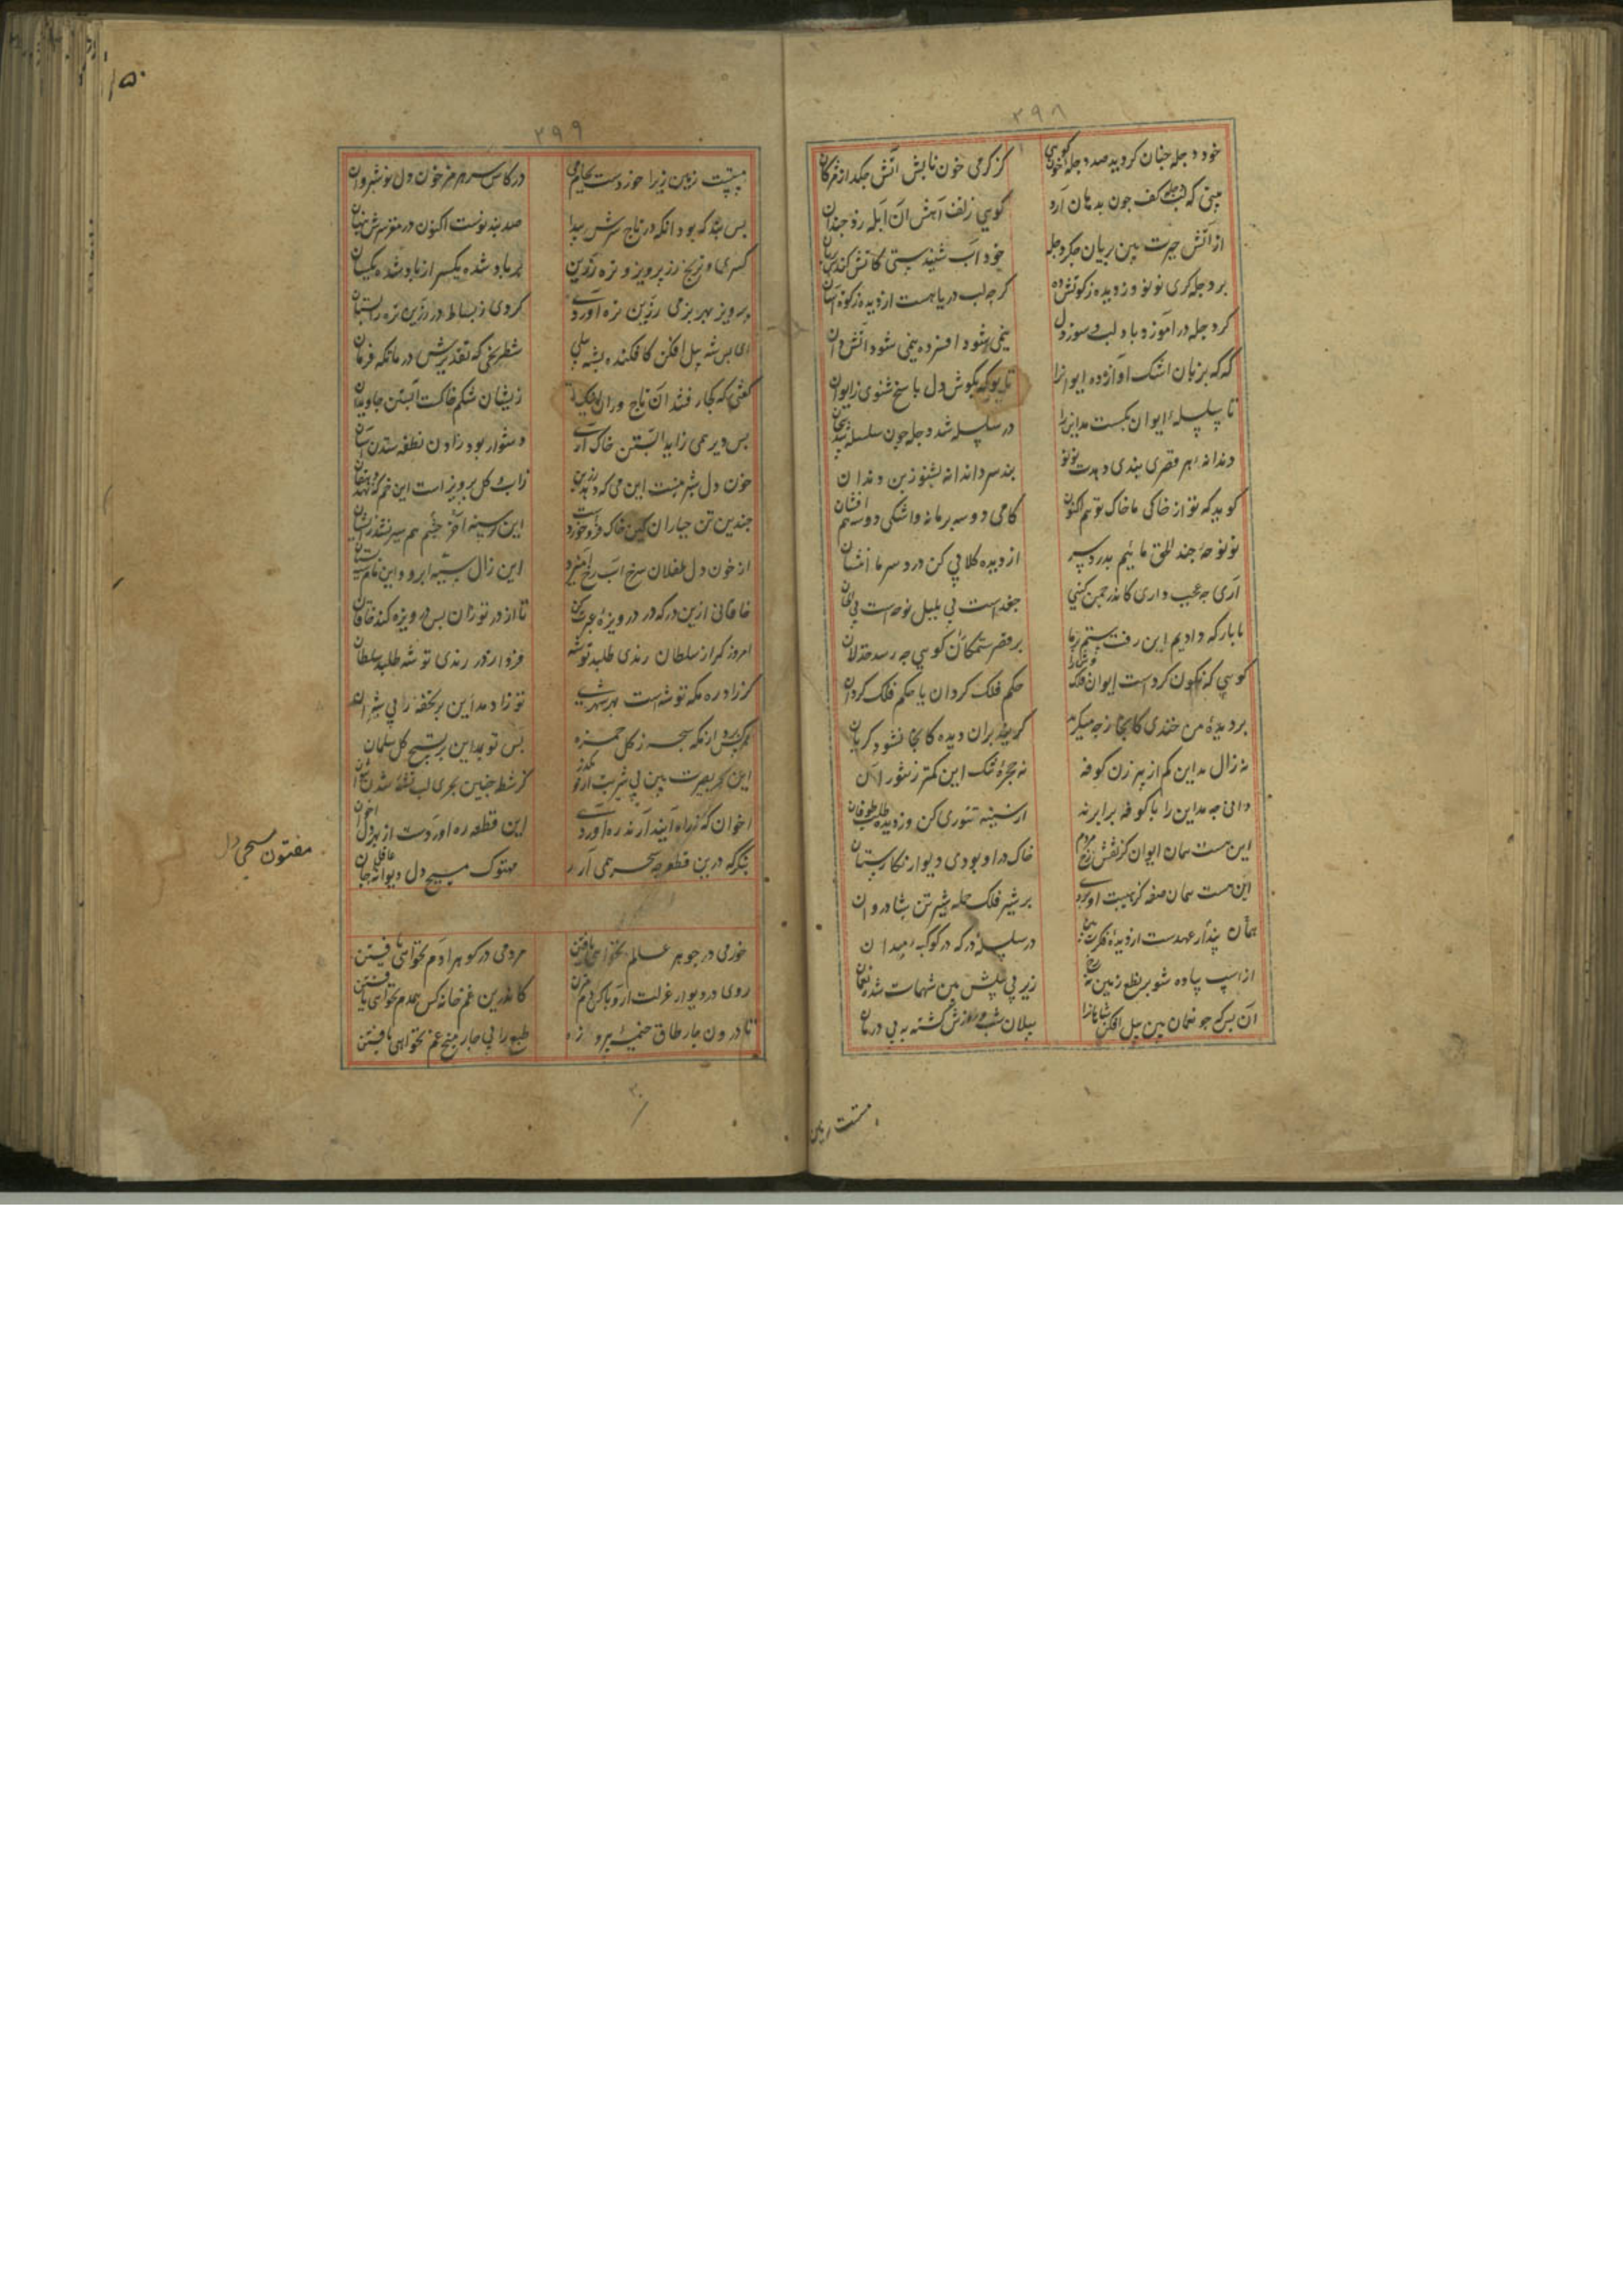 ۲۹۸
خود دجله جنان کرید صد دجله خون کویی کز کرمی خون نابش آتش جکد از مژکان
بینی که لب دجله کف جون بدهان آرد کویی ز تف آهش آن آبله زد جندان
از آتش حسرت بین بریان جکر دجله خود آب شنیدستی کاتش کندش بریان
بر دجله کری نو نو وز دیده زکوتش ده کرجه لب دریا هست از دیده زکوة آسان
کر دجله در آموزد باد لب و سوز دل نیمی شود افسرده نیمی شود آتش دان
که که بزبان اشک آواز ده ایوانرا تا بو که بکوش دل باسخ شنوی ز ایوان
تا سلسلهٔ ایوان بکسست مداین را در سلسله شد دجله جون سلسله شد بیجان
دندانهٔ هر قصری بندی دهدت نو نو بند سر دندانه بشنو ز بن دندان
کوید که تو از خاکی ما خاک توییم اکنون کامی دو سه بر ما نه واشکی دو سه هم افشان
از نوحهٔ جغد الحق ماییم بدرد سر از دیده کلابی کن درد سر ما بنشان
آری جه عجب داری کاندر جمن کیتی جغد است بی بلبل نوحه است بی الحان
ما بارکه دادیم این رفت ستم بر ما بر قصر ستمکاران کویی جه رسد خذلان
کویی که نکون کردست ایوان فلک وش را حکم فلک کردان یا حکم فلک کردان
بر دیدهٔ من خندی کاینجا ز جه میکرید کریند بران دیده کاینجا نشود کریان
نه زال مداین کم از پیر زن کوفه نه حجرهٔ تنک این کمتر ز تنور آن
دانی جه مداین را با کوفه برابر نه از سینه تنوری کن وز دیده طلب طوفان
این هست همان ایوان کز نقش رخ مردم خاک در او بودی دیوار نکارستان
این هست همان صفه کز هیبت او بردی بر شیر فلک حمله شیر تن شادروان
بندار همان عهدست از دیدهٔ فکرت بین در سلسلهٔ درکه در کوکبهٔ میدان
از اسب پیاده شو بر نطع زمین رخ نه زیر پی پیلش بین شهمات شده نعمان
نی نی که جو نعمان بین پیل افکن شاهانرا پیلان شب و روزش کشته به پی دوران
مستست زمین
۲۹۹
۱۵۰
مستست زمین زیرا خوردست بجای می در کاس سر هرمز خون دل نوشیروان
بس بند که بود آنکه در تاج سرش پیدا صد بند نوست اکنون در مغز سرش پنهان
کسری و ترنج زر پرویز و تره زرین بر باد شده یکسر از یاد شده یکسان
پرویز بهر بزمی زرین تره آوردی کردی ز بساط زر زرین تره را بستان
ای بس شه پیل افکن کافکند بشه پیلی شطرنجی تقدیرش در ماتکه فرمان
کفتی که کجا رفتند آن تاج وران اینک زیشان شکم خاکست آبستن جاویدان
بس دیر همی زاید آبستن خاک آری دشوار بود زادن نطفه ستدن آسان
خون دل شیرینست این می که دهد رزبن ز آب و کل پرویز است این خم که نهد دهقان
جندین تن جباران کین خاک فرو خوردست این کرسنه جشم آخر هم سیر نشد زیشان
از خون دل طفلان سرخاب رخ آمیزد این زال سپید ابرو واین مام سیه پستان
خاقانی ازین درکه دریوزهٔ عبرت کن تا از در تو زان بس دریوزه کند خاقان
امروز کر از سلطان رندی طلبد توشه فردا ز در رندی توشه طلبد سلطان
کر زاد ره مکه توشه است بهر شهری تو زاد مداین بر تحفه ز پی شروان
هرکس برد از مکه سبحه ز کل حمزه بس تو ز مداین بر تسبیح کل سلمان
این بحر بصیرت بین بی شربت ازو مکذر کز شط جنین بحری لب تشنه شدن نتوان
اخوان که ز راه آیند آرند ره آوردی این قطعه ره آوردست از بهر دل اخوان
بنکر که درین قطعه جه سحر همی آرد مهتوک مسیح دل دیوانه عاقل جان
مفتون مسیحی دل
خرمی در جوهر عالم نخواهی یافتن مردمی در کوهر آدم نخواهی یافتن
روی در دیوار عزلت آر و باک از دم مزن کاندرین غمخانه کس همدم نخواهی یافتن
تا درون جار طاق خیمهٔ پیروزه طبع را بی جار میخ غم نخواهی یافتن